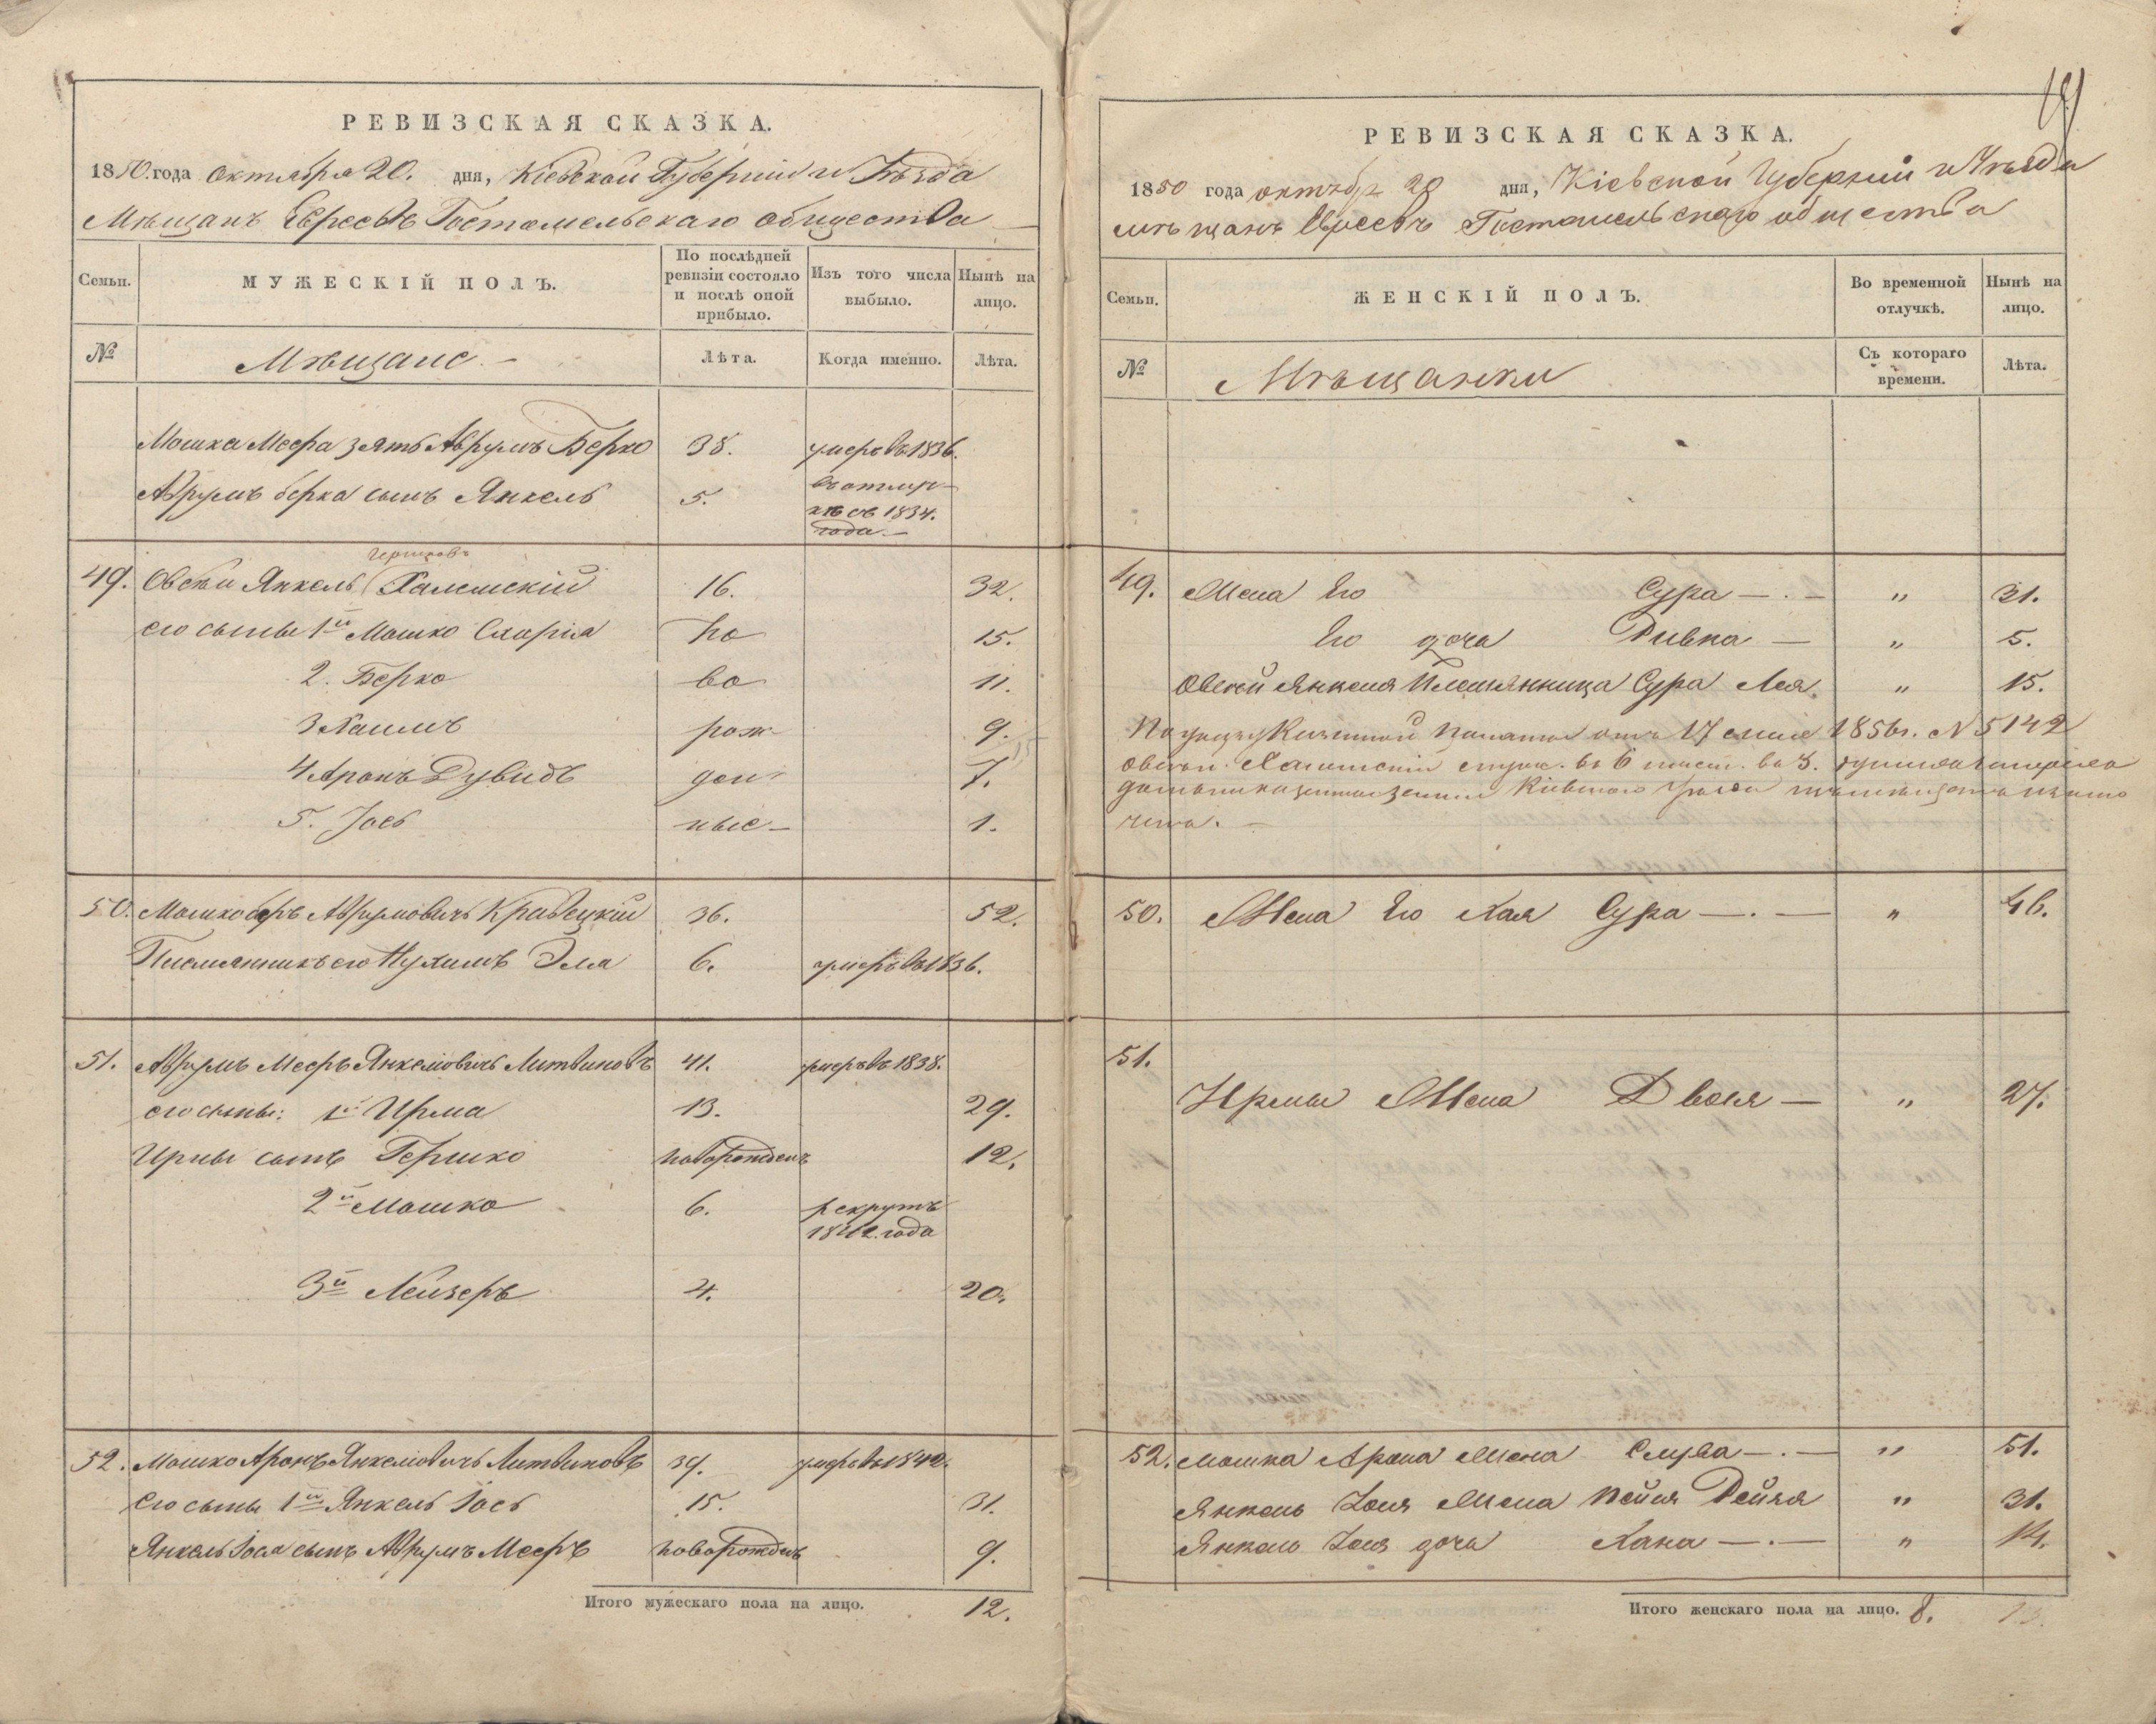 РЕВИЗСКАЯ СКАЗКА.
1850. года октября 20. дня, Кіевской Губерніи и Уѣзда
Мѣщанъ Евреевъ Гостомельскаго общества
Семьи.
МУЖЕСКІЙ ПОЛЪ.
По послѣдней ревизіи состояло и послѣ оной прибыло.
Изъ того числа выбыло.
Нынѣ на лицо.
№
Мѣщане.
Лѣта.
Когда именно.
Лѣта.
Мошка Меера зять Аврумъ Берко 38. умеръ въ 1836.
Аврумъ берка сынъ Янкель 5. въ отлуч-
кѣ съ 1834.
года
49. Овсѣй Янкель Халемскій 16. 32.
его сыны 1й Мошко Схарія но 15.
2. Берко во 11.
3 Хаимъ рож 9.
4 Аронъ Дувидъ ден 7.
5. Іось ные 1.
50. Мошко беръ Аврумовичъ Кравецкій 36. 52.
Племянникъ его Нухимъ Эла 6. умеръ въ 1836.
51. Аврумъ Мееръ Янкелювичъ Литвиновъ 41. умеръ въ 1838.
его сыны: 1й Ирма 13. 29.
Ирмы сынъ Гершко новорожденъ 12.
2й Мошко 6. рекрутъ
1842. года
3й Лейзеръ 4. 20.
52. Мошко Аронъ Янкелювичъ Литвиновъ 39. умеръ въ 1842.
Его сыны 1й Янкель Іось 15. 31.
Янкель Іося сынъ Аврумъ Мееръ новорожденъ 9.
Итого мужескаго пола на лицо. 12.
РЕВИЗСКАЯ СКАЗКА.
1850 года октябр 20 дня, Кіевской Губерніи и Уѣзда
мѣщанъ Евреевъ Гостомельскаго общества
Семьи.
ЖЕНСКІЙ ПОЛЪ.
Во временной отлучкѣ.
Нынѣ на лицо.
№
Мѣщанки
Съ котораго времени.
Лѣта.
49. Жена Его Сура " 31.
Его дочь Ривка " 5.
Овсей Янкеля Племянница Сура Лея " 15.
По указу Казенной Палаты отъ 17 1856 г. N 5142
50. Жена Его Хая Сура " 46.
51.
Ирмы Жена Двося " 27.
52. Мошка Арона Жена Слува " 51.
Янкель Іося Жена Пейся Рейзя " 31.
Янкель Іося дочь Хана " 14.
Итого женскаго пола на лицо. 8.